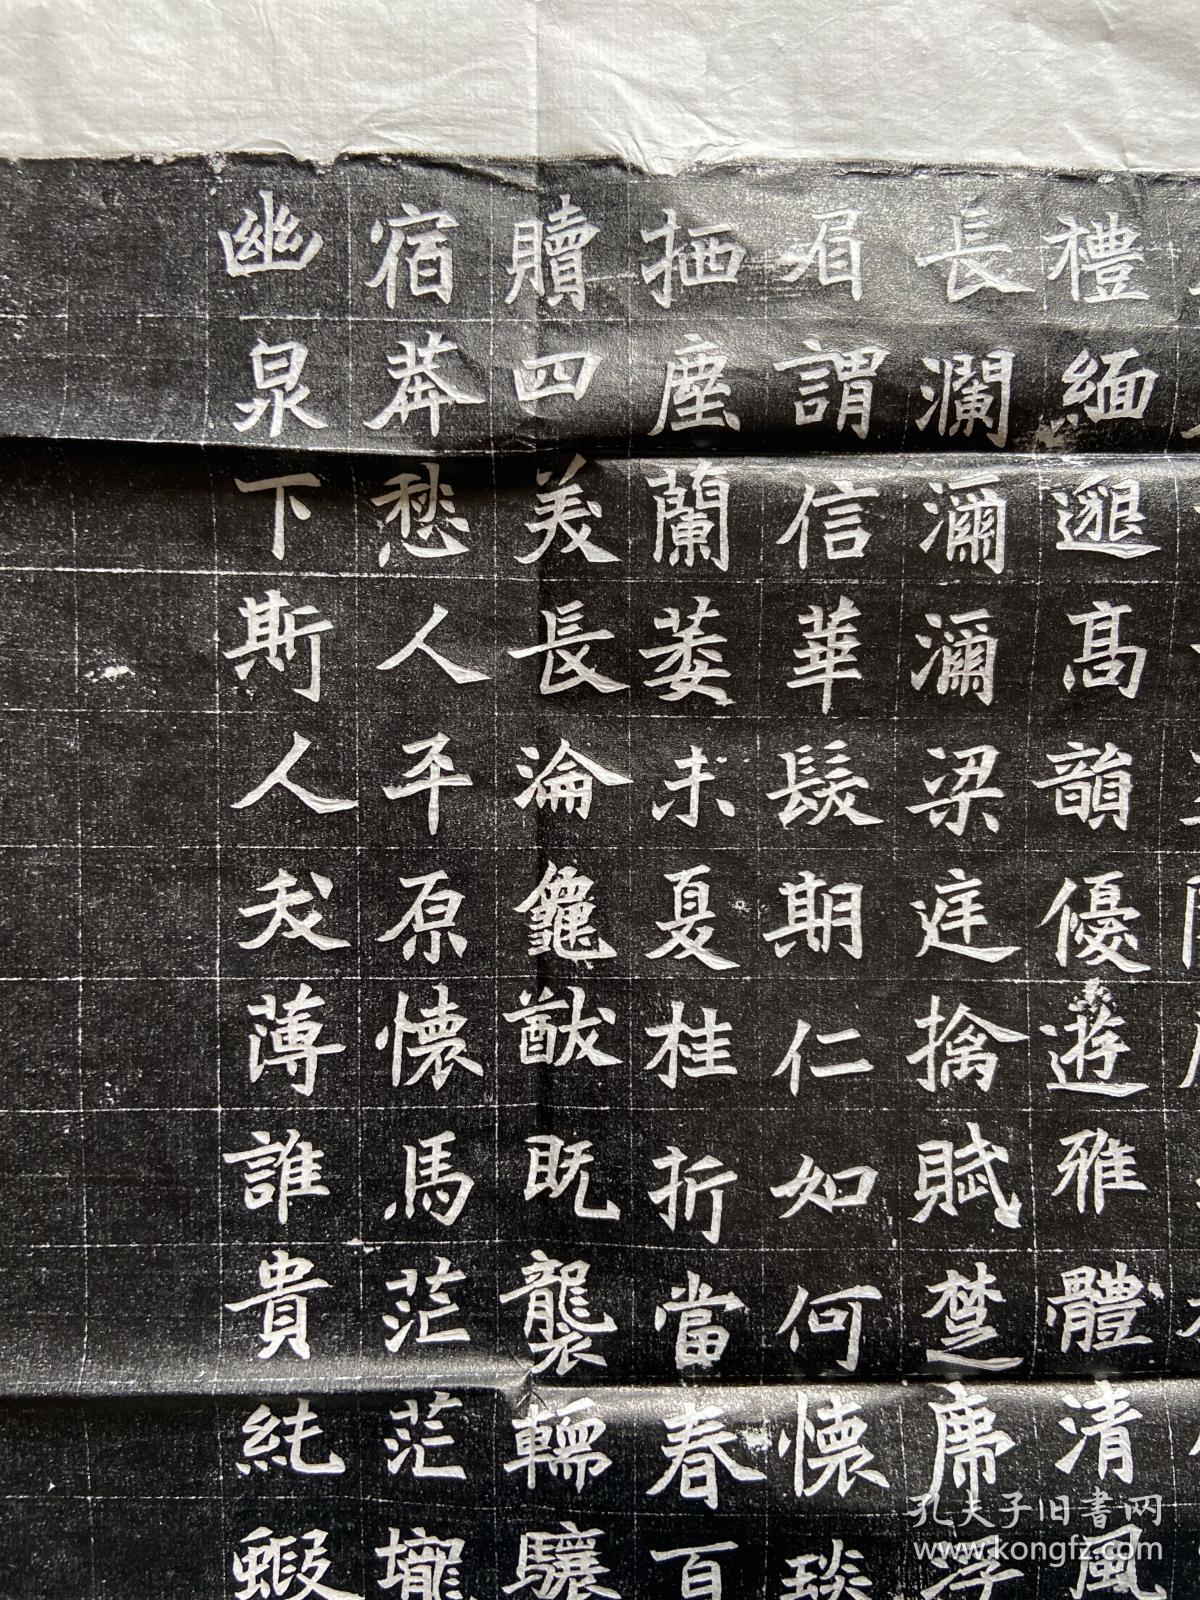 禮緬邈高韻優遊雅體清風
長瀾瀰瀰梁庭摛賦楚席浮
眉謂信華髮期仁如何懷琰
栖塵蘭萎未夏桂折當春百
贖四美長淪龜猷既襲轜驤
宿莽愁人平原懷馬茫茫壠
幽泉下斯人天薄誰貴純嘏
孔夫子旧書网
www.kongfz.com